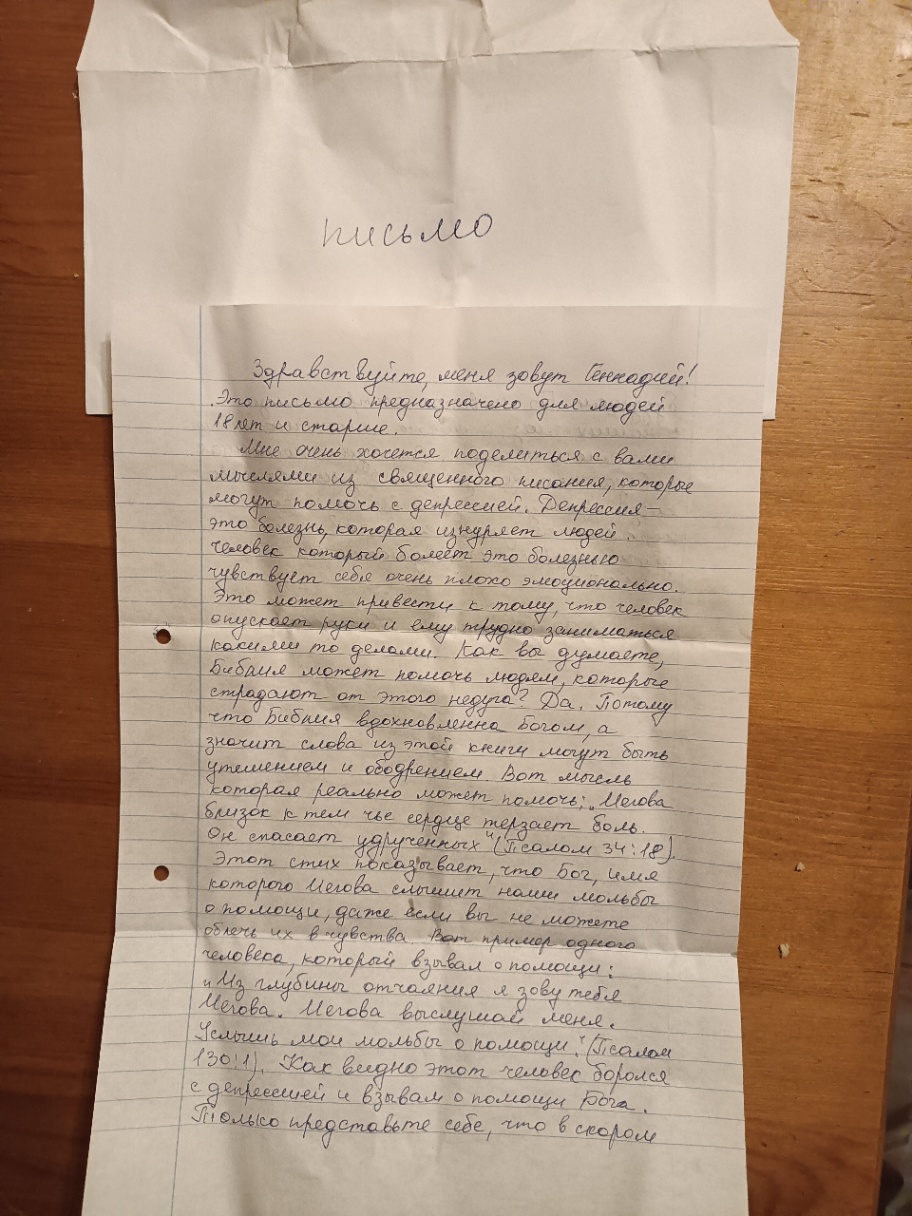 письмо
Здравствуйте, меня зовут Геннадий!
Это письмо предназначено для людей
18 лет и старше.
Мне очень хочется поделиться с вами
мыслями из священного писания, которые
могут помочь с депрессией. Депрессия –
это болезнь, которая изнуряет людей.
Человек который болеет это болезнью
чувствует себя очень плохо эмоционально.
Это может привести к тому, что человек
опускает руки и ему трудно заниматься
какими то делами. Как вы думаете,
Библия может помочь людям, которые
страдают от этого недуга? Да. Потому
что Библия вдохновленна Богом, а
значит слова из этой книги могут быть
утешением и ободрением. Вот мысль
которая реально может помочь: „Иегова
близок к тем чье сердце терзает боль.
Он спасает удрученных" (Псалом 34:18).
Этот стих показывает, что Бог, имя
которого Иегова слышит наши мольбы
о помощи, даже если вы не можете
облечь их в чувства. Вот пример одного
человека, который взывал о помощи:
„Из глубины отчаяния я зову тебя
Иегова. Иегова выслушай меня.
Услышь мои мольбы о помощи." (Псалом
130:1). Как видно этот человек боролся
с депрессией и взывал о помощи Бога.
Только представьте себе, что в скором